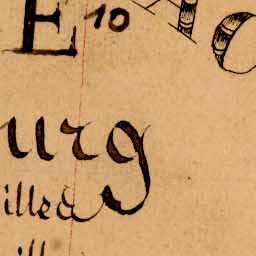 E 10 AO
urg
illed
ill